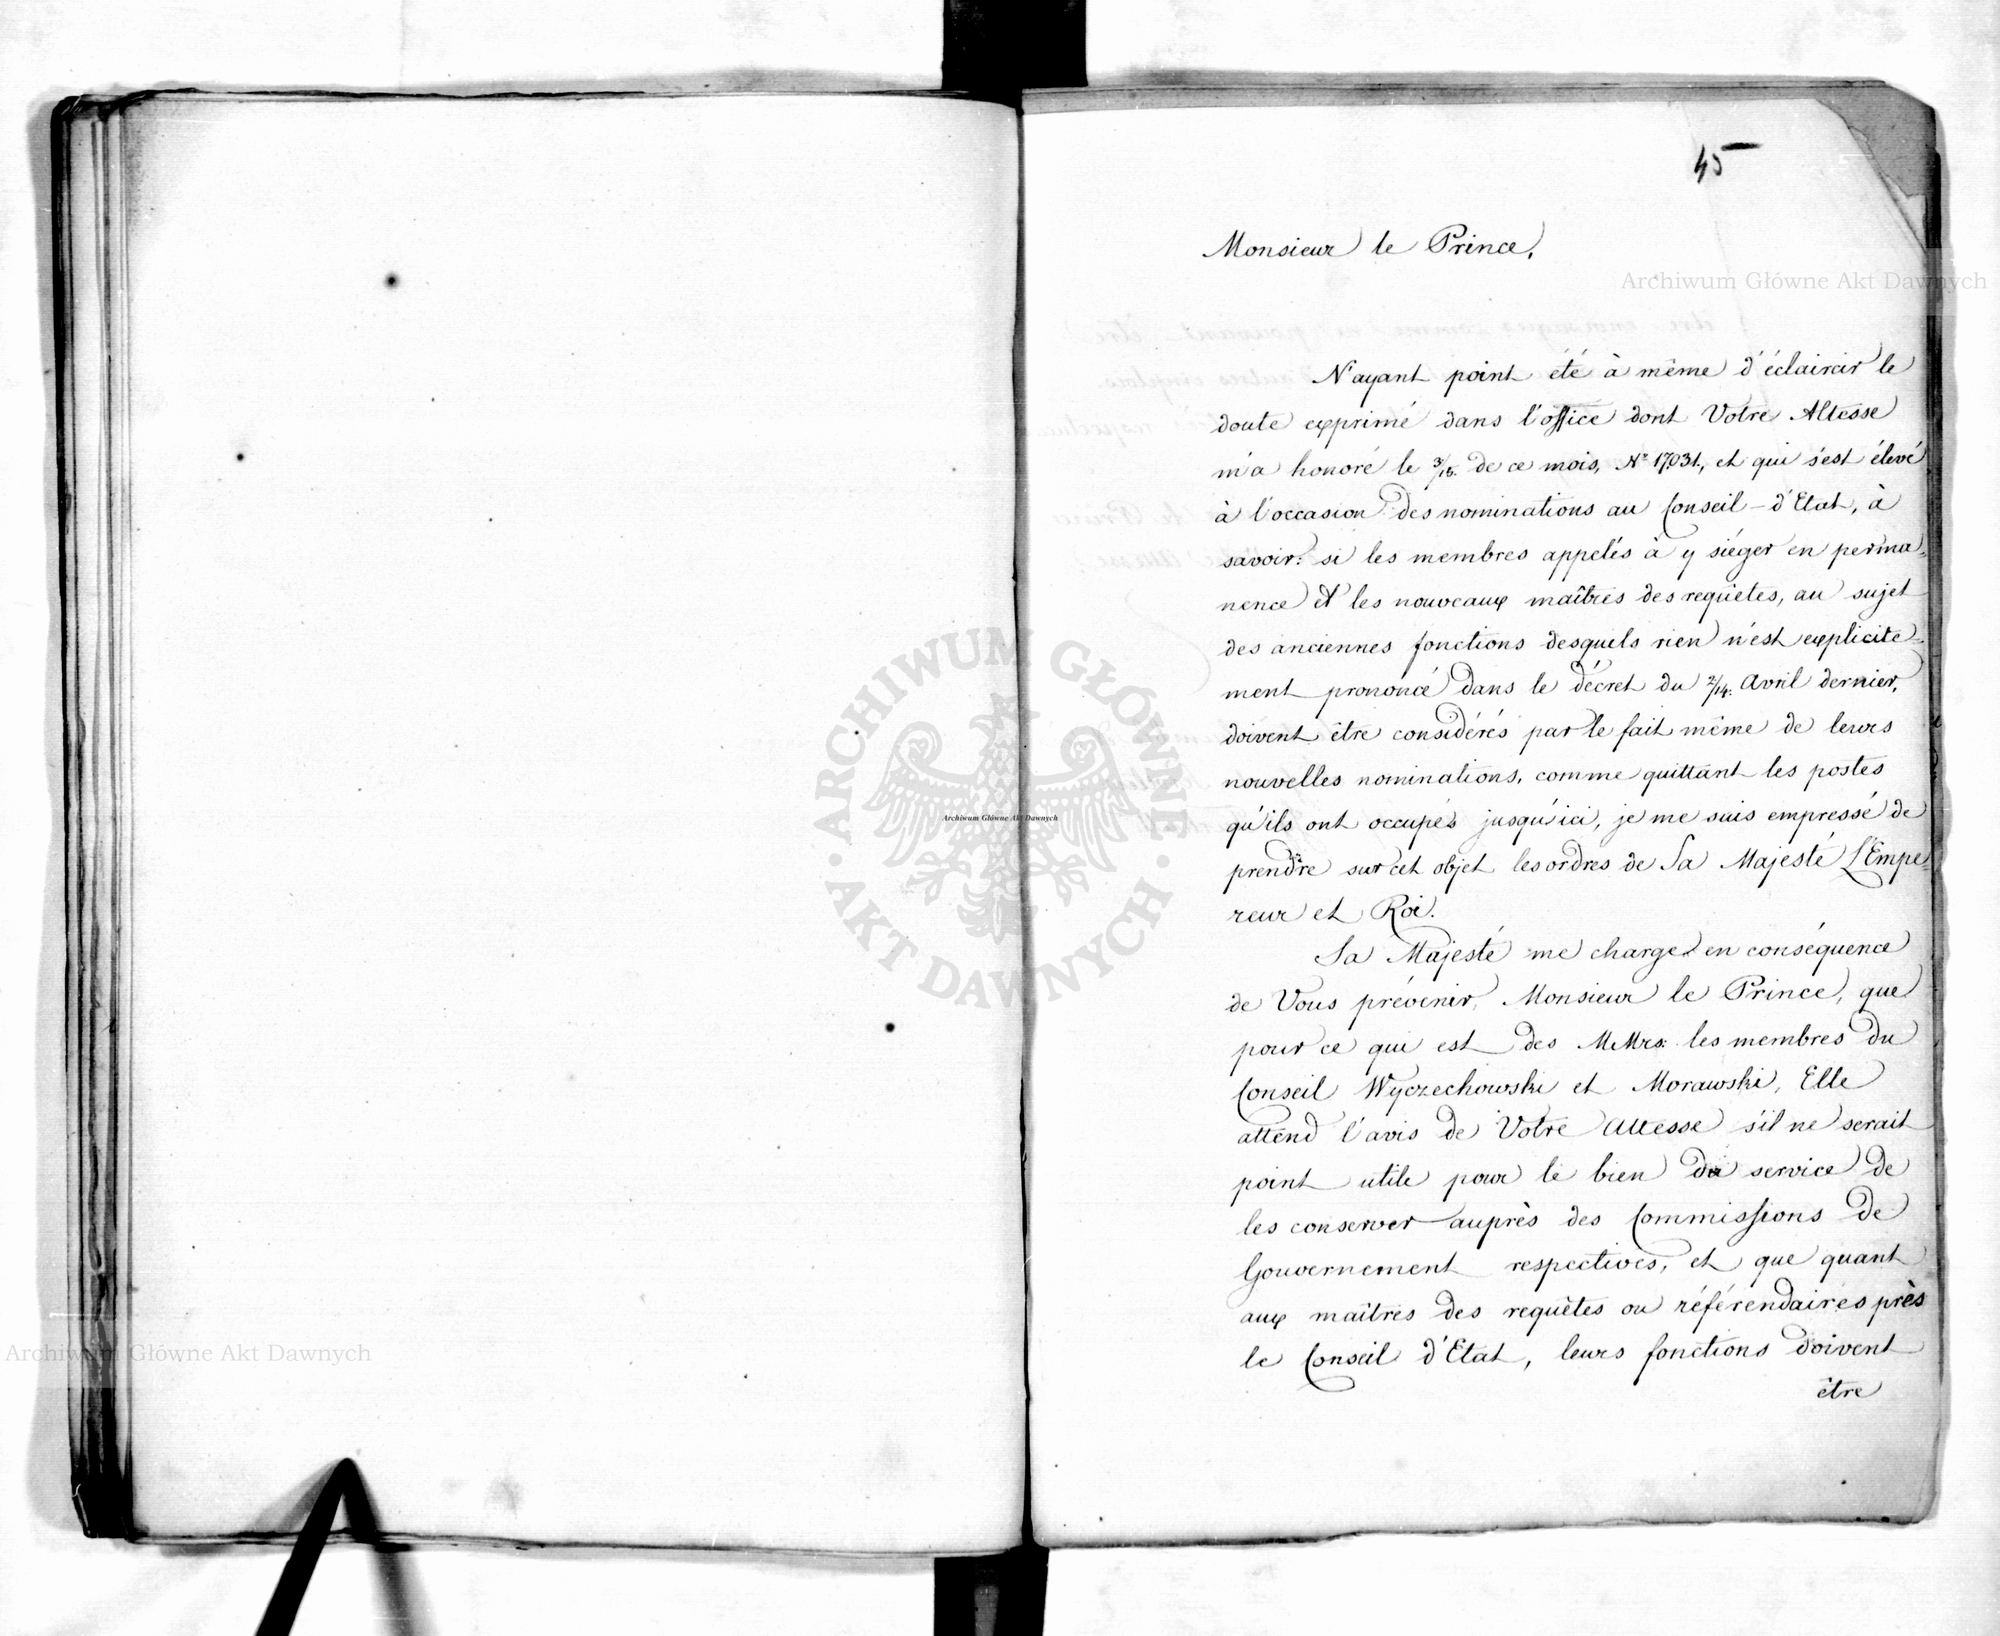 45
Monsieur le Prince,
Archiwum Główne Akt Dawnych
N'ayant point été à même d'éclaircir le
doute exprimé dans l'office dont Votre Altesse
m'a honoré le 3/15. de ce mois, Nº 17031, et qui s'est élevé
à l'occasion des nominations au Conseil-d'Etat, à
savoir: si les membres appelés à y siéger en perma=
nence et les nouveaux maîtres des requêtes, au sujet
des anciennes fonctions desquels rien n'est explicite=
ment prononcé dans le décret du 2/14. Avril dernier,
doivent être considérés par le fait même de leurs
nouvelles nominations, comme quittant les postes
qu'ils ont occupés jusqu'ici, je me suis empressé de
prendre sur cet objet les ordres de Sa Majesté L'Empe=
reur et Roi.
Sa Majesté me charge en conséquence
de Vous prévenir, Monsieur le Prince, que
pour ce qui est des MMrs: les membres du
Conseil Wyczechowski et Morawski, Elle
attend l'avis de Votre Altesse s'il ne serait
point utile pour le bien du service de
les conserver auprès des Commissions de
Gouvernement respectives, et que quant
aux maîtres des requêtes ou référendaires près
le Conseil d'Etat, leurs fonctions doivent
être
ARCHIWUM GŁÓWNE
AKT DAWNYCH
Archiwum Główne Akt Dawnych
Archiwum Główne Akt Dawnych